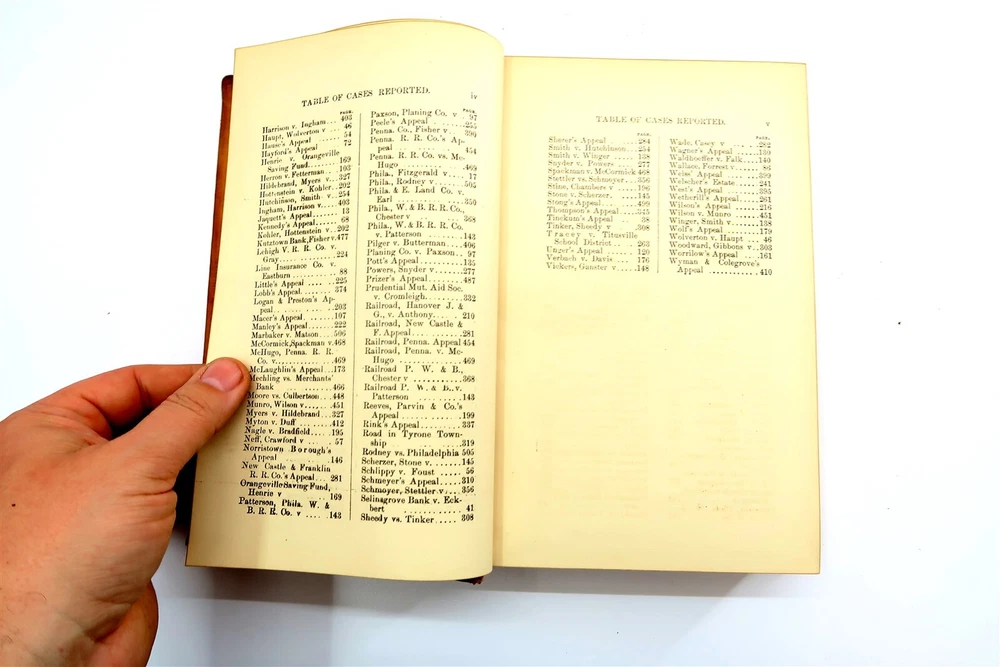 TABLE OF CASES REPORTED. iv
PAGE.
Harrison v. Ingham... 403
Haupt, Wolverton v ... 46
Hause's Appeal ...... 54
Hayford's Appeal 72
Henrie v. Orangeville
Saving Fund........ 169
Herron v. Fetterman .. 103
Hildebrand, Myers v... 327
Hottenstein v. Kohler. 202
Hutchinson, Smith v.. 254
Ingham, Harrison v....403
Jaquett's Appeal....... 13
Kennedy's Appeal...... 68
Kohler, Hottenstein v.. 202
Kutztown Bank, Fisher v.477
Lehigh V. R. R. Co. v.
Gray.................224
Line Insurance Co. v.
Eastburn ........ 88
Little's Appeal .... .. 225
Lobb's Appeal........ 374
Logan & Preston's Ap-
peal..... ... ......203
Macer's Appeal.......107
Manley's Appeal......222
Marbaker v. Matson...506
McCormick, Spackman v.468
McHugo, Penna. R. R.
Co. v...............469
McLaughlin's Appeal...173
Mechling vs. Merchants'
Bank .. ........ 466
Moore vs. Culbertson...448
Munro, Wilson v......451
Myers v. Hildebrand...327
Myton v. Duff .......412
Nagle v. Bradfield....195
Neff, Crawford v ..... 57
Norristown Borough's
Appeal .......... 146
New Castle & Franklin
R. R. Co.'s Appeal... 281
Orangeville Saving Fund,
Henrie v ......... 169
Patterson, Phila. W. &
B. R. R. Co. v .... ....143
PAGE.
Paxson, Planing Co. v . 97
Peele's Appeal .......255
Penna. Co., Fisher v.. 390
Penna. R. R. Co.'s Ap-
peal ..............454
Penna. R. R. Co. vs. Mc-
Hugo ..............469
Phila., Fitzgerald v.... 17
Phila., Rodney v......505
Phila. & E. Land Co. v.
Earl ...............350
Phila., W. & B. R. R. Co.,
Chester v .. ........ 368
Phila., W. & B. R. R. Co.
v. Patterson ........143
Pilger v. Butterman ...406
Planing Co. v. Paxson.. 97
Pott's Appeal.........135
Powers, Snyder v......277
Prizer's Appeal........487
Prudential Mut. Aid Soc.
v. Cromleigh........332
Railroad, Hanover J. &
G., v. Anthony.... . 210
Railroad, New Castle &
F. Appeal............281
Railroad, Penna. Appeal 454
Railroad, Penna. v. Mc-
Hugo ..............469
Railroad P. W. & B.,
Chester v ...........368
Railroad P. W. & B., v.
Patterson ..........143
Reeves, Parvin & Co.'s
Appeal ............199
Rink's Appeal.........337
Road in Tyrone Town-
ship ...............319
Rodney vs. Philadelphia 505
Scherzer, Stone v......145
Schlippy v. Foust ..... 56
Schmeyer's Appeal.....310
Schmoyer, Stettler v...356
Selinsgrove Bank v. Eck-
bert ............... 41
Sheedy vs. Tinker..... 308
TABLE OF CASES REPORTED. v
PAGE.
Sharer's Appeal .......284
Smith v. Hutchinson...254
Smith v. Winger ..... 138
Snyder v. Powers .....277
Spackman v. McCormick 468
Stettler vs. Schmoyer...356
Stine, Chambers v .....196
Stone v. Scherzer......145
Stong's Appeal........499
Thompson's Appeal....345
Tinckum's Appeal ..... 38
Tinker, Sheedy v ......308
Tracey v. Titusville
School District..... 263
Unger's Appeal ....... 120
Verbach v. Davis .... 176
Vickers, Ganster v ....148
PAGE.
Wade, Casey v ........282
Wagner's Appeal......130
Waldhoffer v. Falk....140
Wallace, Forrest v ..... 86
Weiss' Appeal ........399
Welscher's Estate .....241
West's Appeal.........395
Wetherill's Appeal ....261
Wilson's Appeal ......216
Wilson v. Munro ......451
Winger, Smith v.......138
Wolf's Appeal ........179
Wolverton v. Haupt ... 46
Woodward, Gibbons v ..303
Worrilow's Appeal ....161
Wyman & Colegrove's
Appeal .............410